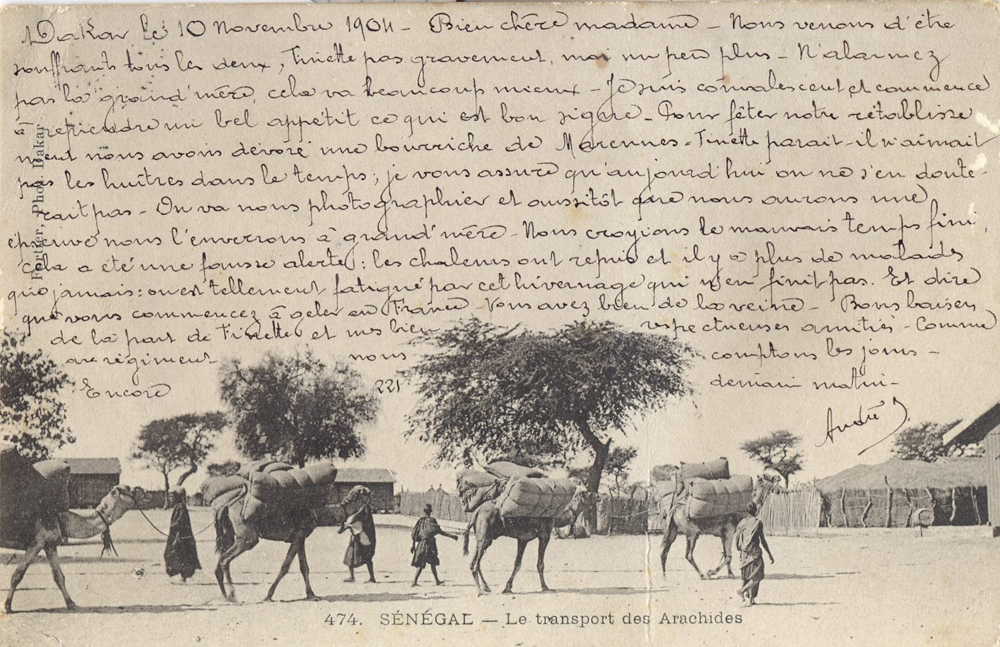 Dakar le 10 Novembre 1904 - Bien chère madame - Nous venons d'être
souffrants tous les deux, Finette pas gravement, moi un peu plus - N'alarmez
pas la grand'mère, cela va beaucoup mieux - Je suis convalescent et commence
à reprendre un bel appétit ce qui est bon signe - Pour fêter notre rétablisse
ment nous avons dévoré une bourriche de Marennes - Finette parait-il n'aimait
pas les huîtres dans le temps ; je vous assure qu'aujourd'hui on ne s'en doute-
rait pas - On va nous photographier et aussitôt que nous aurons une
épreuve nous l'enverrons à grand'mère - Nous croyions le mauvais temps fini,
cela a été une fausse alerte : les chaleurs ont repris et il y a plus de malades
que jamais : on est tellement fatigué par cet hivernage qui n'en finit pas. Et dire
que vous commencez à geler en France - Vous avez bien de la veine - Bons baisers
de la part de Finette et mes bien respectueuses amitiés - Comme
au régiment nous comptons les jours -
Encore 221 demain matin -
André
Fortier, Phot. Dakar
474. SÉNÉGAL — Le transport des Arachides